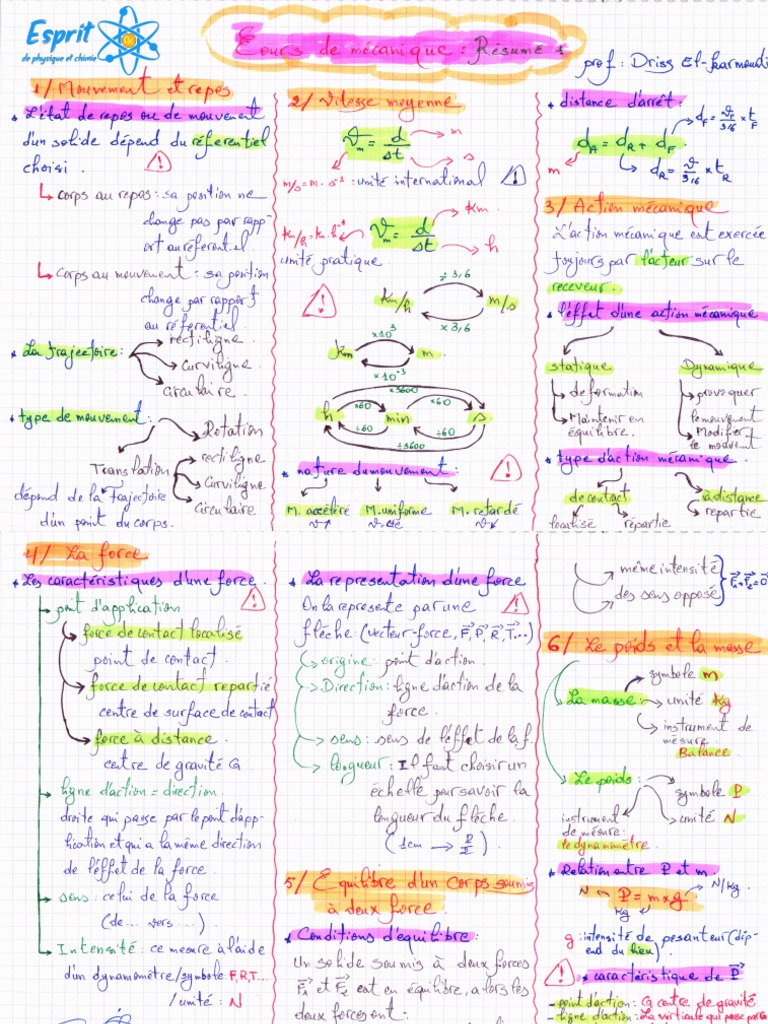 Esprit
de physique et chimie
Cours de mécanique : Résumé 1
prof : Driss El-
1/ Mouvement et repos
* L'état de repos ou de mouvement
d'un solide dépend du référentiel
choisi .
corps au repos : sa position ne
change pas par rapp-
ort au référentiel.
corps au mouvement : sa position
change par rapport
au référentiel.
* La trajectoire :
rectiligne
curviligne
circulaire.
* type de mouvement :
Rotation
Translation
rectiligne
curviligne
circulaire
dépend de la trajectoire
d'un point du corps.
2/ Vitesse moyenne
Vm = d/Δt
m
s
m/s = m.s⁻¹ : unité international
Vm = d/Δt
Km
h
Km/h = Km.h⁻¹
unité pratique
÷ 3,6
Km/h
m/s
× 3,6
×10³
Km
m
×10⁻³
×3600
h
×60
min
×60
s
÷60
÷60
÷3600
* nature du mouvement :
M. accéléré
M. uniforme
M. retardé
V↗
V. cte
V↘
* distance d'arrêt :
dF = V/3,6 × tF
dA = dR + dF
m
dR = V/3,6 × tR
3/ Action mécanique
L'action mécanique est exercée
toujours par l'acteur sur le
receveur .
* l'effet d'une action mécanique
statique
Dynamique
deformation
provoquer
le mouvement
Maintenir en
équilibre.
Modifier
le mouvent
* type d'action mécanique
de contact
à distance
localisé
répartie
repartie
4/ La force
* Les caractéristiques d'une force .
point d'application
force de contact localisé
point de contact .
force de contact repartié
centre de surface de contact
force à distance .
centre de gravité G
ligne d'action = direction.
droite qui passe par le point d'app-
lication et qui a la même direction
de l'effet de la force .
sens : celui de la force
(de... vers...)
Intensité : ce mesure à l'aide
d'un dynamomètre/symbole F,R,T...
/ unité : N
* La representation d'une force
On la represente par une
flèche : (vecteur-force, F⃗, P⃗, R⃗, T⃗...)
origine : point d'action .
Direction : ligne d'action de la
force .
sens : sens de l'effet de la f.
longueur : Il faut choisir un
échelle pour savoir la
longueur du flèche.
5/ Equilibre d'un corps soumis
à deux force
* Conditions d'équilibre :
Un solide soumis à deux forces
F⃗₁ et F⃗₂ est en équilibre, alors les
deux forces ont :
même intensité
des sens opposé
F⃗₁+F⃗₂=0⃗
6/ Le poids et la masse
La masse :
symbole m
unité Kg
instrument de
mésure
Balance
Le poids :
symbole P
unité N
instrument
de mésure :
le dynamomètre.
* Relation entre P et m .
N
P = m x g
N/Kg
Kg
g : intensité de pesanteur (dép-
end du lieu) .
* caractéristique de P⃗
- point d'action : G centre de gravité
- ligne d'action : La verticale qui passe par G